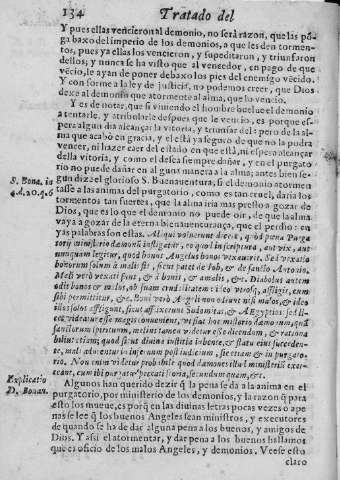 134 Tratado del
Y pues ellas vencieron al demonio, no será razon, que las põ-
ga baxo del imperio de los demonios, a que les den tormen-
tos, pues ya ellas los vencieron, y supeditaron, y triunfaron
dellos, y nunca se ha visto que al vencedor, en pago de que
vẽcio, le ayan de poner debaxo los pies del enemigo vẽcido.
Y conforme a la ley de justicia, no podemos creer, que Dios
dexe al demonio que atormente al alma, que lo vencio.
Y es de notar, que si viniendo el hombre buelue el demonio
a tentarle, y atribularle despues que le vencio, es porque es-
pera algun dia alcançar la vitoria, y triunfar del: pero de la al-
ma que acabò en gracia, y el està ya seguro de que no la podra
vencer, ni hazer caer del estado en que està, ni espera alcançar
della vitoria, y como el dessea siempre dañar, y en el purgato
rio no puede dañar en alguna manera a la alma; antes bien se-
S. Bona. in
gun dize el glorioso S. Buenauentura, si el demonio atormen
4.d.20.q.6
tasse a las animas del purgatorio, como es tan cruel, daria los
tormentos tan fuertes, que la alma iria mas presto a gozar de
Dios, que es lo que el demonio no puede oir, de que la alma
vaya a gozar de la eterna bienauenturança, que el perdio: en
yas palabras son estas. Al qui voluerunt dicere, quod pœna Purga
torij ministerio dæmonũ infligatur, eo quod in scriptura, aut vix, aut
nunquam legitur, quod bonus Angelus bonos vexauerit. Sed vexatio
bonorum solum à malis fit, sicut patet de Iob, & de sancto Antonio,
Mali verò vexat sunt, & à bonis, & a malis, &c. Diabolus autem
odit bonos & malos, ob suam crudelitatem: ideo vtrosq; affligit, cum
sibi permittitur, &c. Boni verò Angeli non odiunt nisi malos, & ideo
illos solos affligunt, sicut affixerunt Sodomitas, & Ægyptios. sed li-
cet videatur esse magis conueniens, vt fiat hoc ministerio dæmonum, quã
sanctorum spirituum, nec in tamen videtur esse dicendum, & rationa
bilius: etiam; quod sicut diuina iustitia iubente, & statu eius succeden-
te, mali aduentur in infernum post iudicium, sic etiam & in purgato-
rio. Non enim videtur probabile quod dæmones illud ministerij exer-
ceant, cum ibi purgatur peccati scoria, secundum quam, &c.
Explicatio
Algunos han querido dezir q̃ la pena se da a la anima en el
D. Bonau.
purgatorio, por ministerio de los demonios, y la razon q̃ para
esto los mueue, es porq̃ en las diuinas letras pocas vezes o ape
nas se lee q̃ los buenos Angeles sean ministros, y executores
de quando se ha de dar alguna pena a los buenos, y amigos de
Dios. Y assi el atormentar, y dar pena a los buenos hallamos
que es oficio de los malos Angeles, y demonios. Veese esto
claro